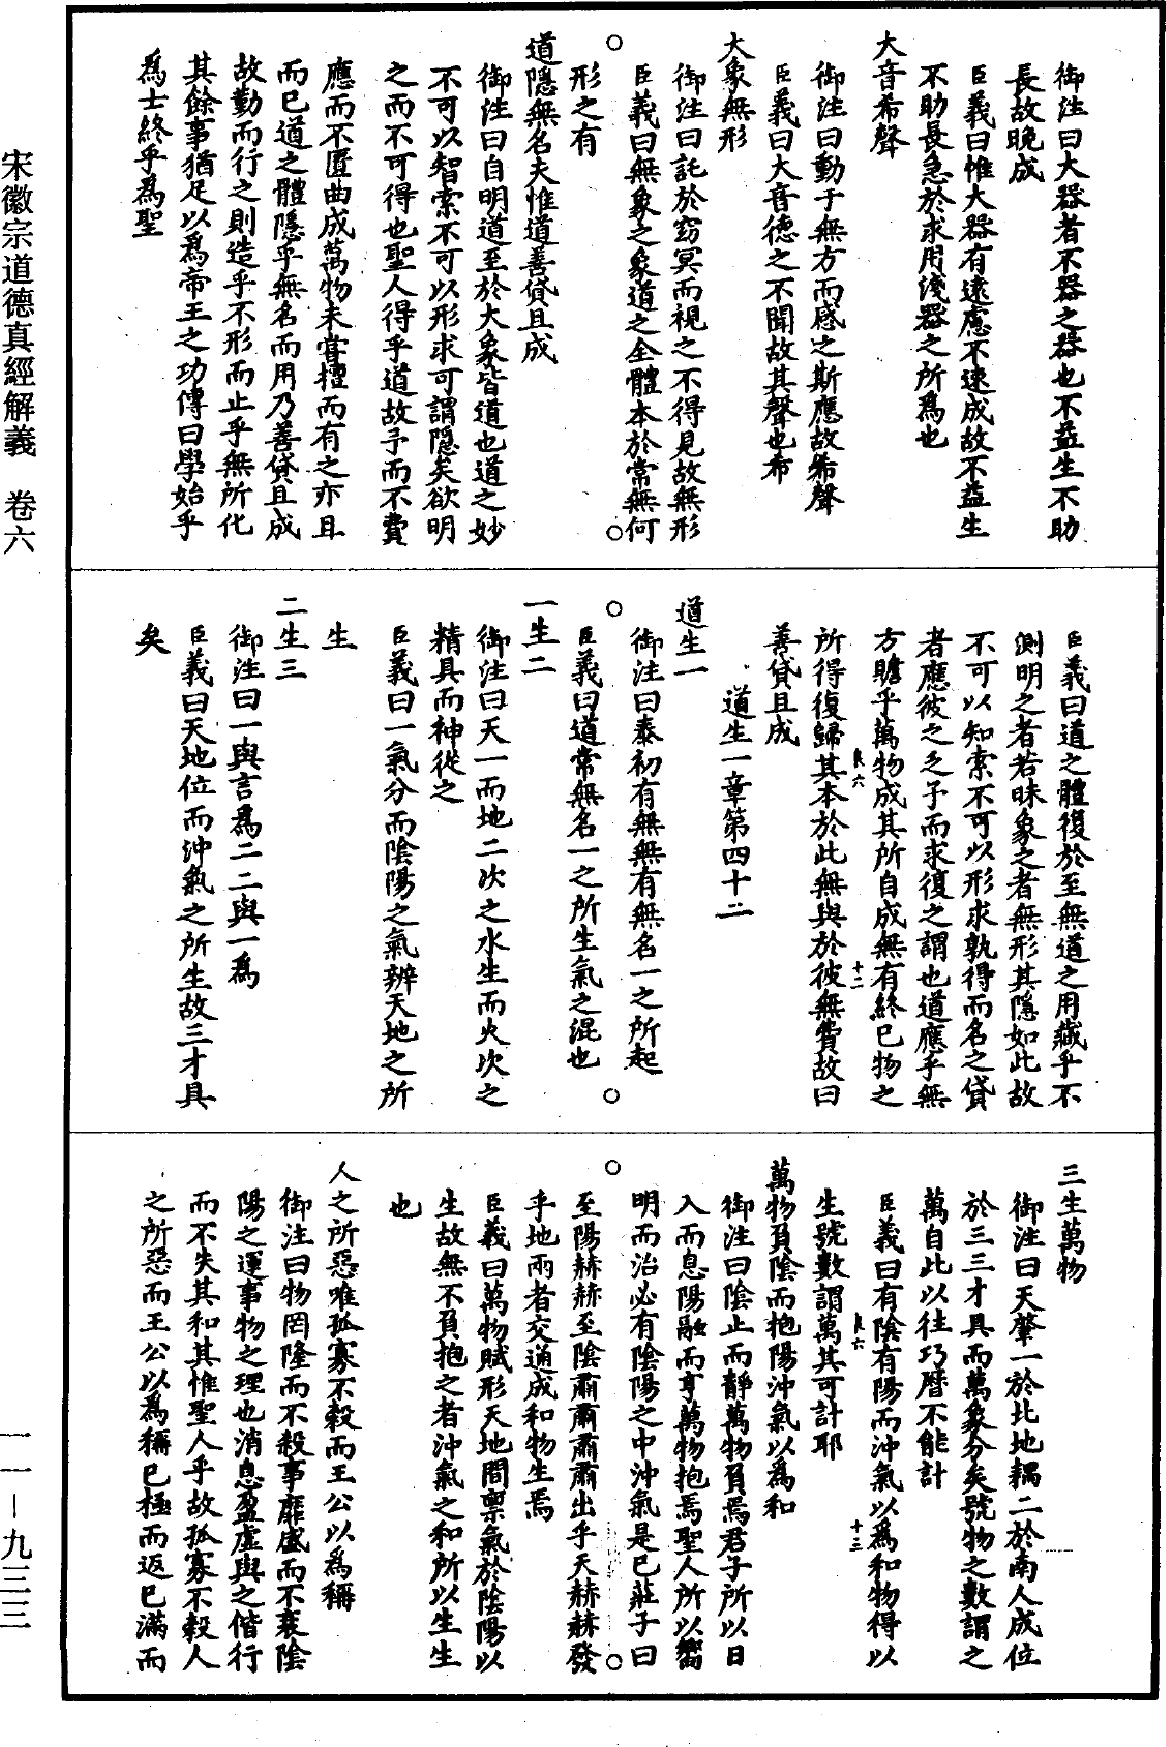 御注曰大器者不器之器也不益生不助
長故晚成
臣義曰惟大器有遠應不速成故不益生
不助長急於求用淺器之所爲也
大音希聲
御注曰動于無方而感之斯應故希聲
臣義曰大音德之不聞故其聲也希
大象無形
御注曰託於窈冥而視之不得見故無形
臣義曰無象之象道之全體本於常無何
形之有
道隱無名夫惟道善貸且成
御注曰自明道至於大象皆道也道之妙
不可以智索不可以形求可謂隱矣欲明
之而不可得也聖人得乎道故予而不費
應而不匱曲成萬物未嘗擅而有之亦且
而已道之體隱乎無名而用乃善貸且成
故勤而行之則造乎不形而止乎無所化
其餘事猶足以爲帝王之功傳曰學始乎
爲士終乎爲聖
臣義曰道之體復於至無道之用藏乎不
測明之者若昧象之者無形其隱如此故
不可以知索不可以形求孰得而名之貸
者應彼之乏予而求復之謂也道應乎無
方贍乎萬物成其所自成無有終已物之
良六
十二
所得復歸其本於此無與於彼無費故曰
善貸且成
道生一章第四十二
道生一
御注曰泰初有無無有無名一之所起
臣義曰道常無名一之所生氣之混也
一生二
御注曰天一而地二次之水生而火次之
精具而神從之
臣義曰一氣分而陰陽之氣辨天地之所
生
二生三
御注曰一與言爲二二與一爲
臣義曰天地位而沖氣之所生故三才具
矣
三生萬物
御注曰天肇一於北地耦二於南人成位
於三三才具而萬象分矣號物之數謂之
萬自此以往巧曆不能計
臣義曰有陰有陽而沖氣以爲和物得以
良六
十三
生號數謂萬其可計耶
萬物負陰而抱陽沖氣以爲和
御注曰陰止而靜萬物負焉君子所以日
入而息陽融而亨萬物抱焉聖人所以嚮
明而治必有陰陽之中沖氣是已莊子曰
至陽赫赫至陰肅肅肅肅出乎天赫赫發
乎地兩者交通成和物生焉
臣義曰萬物賦形天地間禀氣於陰陽以
生故無不負抱之者沖氣之和所以生生
也
人之所惡唯孤寡不穀而王公以爲稱
御注曰物罔隆而不殺事靡盛而不衰陰
陽之運事物之理也消息盈虛與之偕行
而不失其和其惟聖人乎故孤寡不穀人
之所惡而王公以爲稱已極而返已滿而
宋徽宗道德真經解義　卷六
一一－九三三